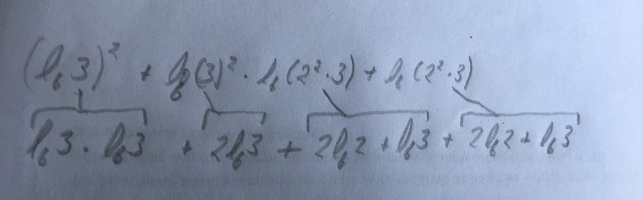 (l₆3)² + l₆(3)² · l₆(2²·3) + l₆(2²·3)
l₆3 · l₆3 + 2l₆3 + 2l₆2 + l₆3 + 2l₆2 + l₆3